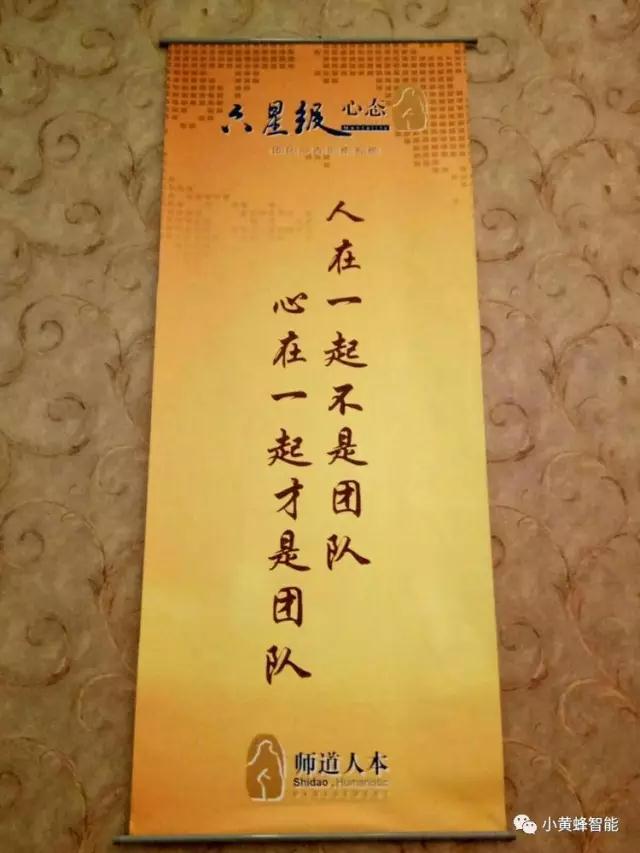 六星级心态
Mentality
人在一起不是团队
心在一起才是团队
师道人本
Shidao.Humanistic
小黄蜂智能